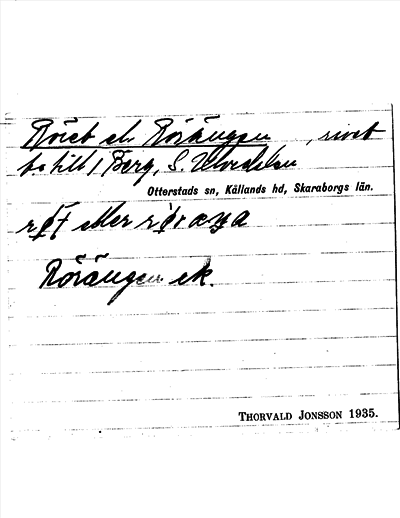 Röret el. Rörängen, rivet
t. till 1 Berg, S.
Otterstads sn, Kållands hd, Skaraborgs län.
eller
Rörängen ek.
THORVALD JONSSON 1935.